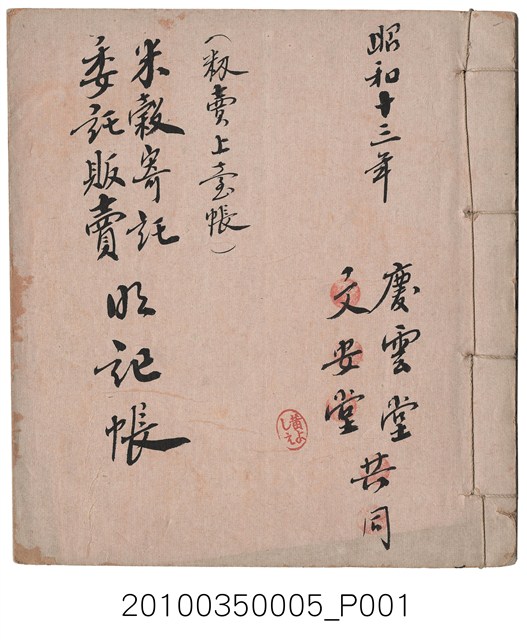 昭和十三年
慶雲堂
文安堂
共同
(籾賣上臺帳)
米穀寄託
委託販賣
明記帳
黃よしゑ
20100350005_P001